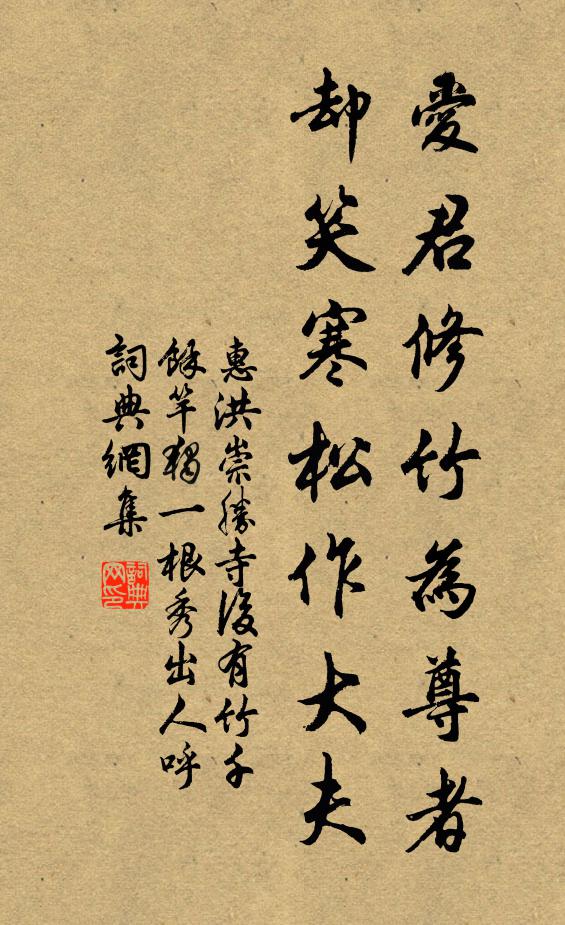 愛君修竹為尊者
却笑寒松作大夫
惠洪崇勝寺後有竹千
餘竿獨一根秀出人呼
詞典網集
詞典
网印